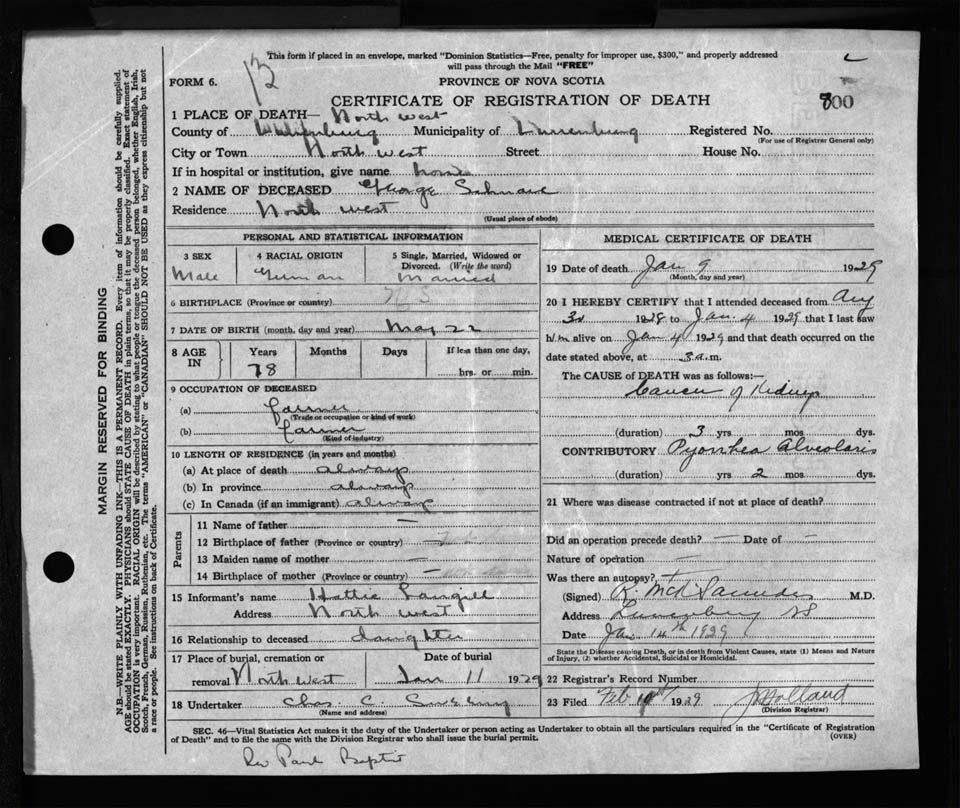 This form if placed in an envelope, marked "Dominion Statistics—Free, penalty for improper use, $300," and properly addressed
will pass through the Mail "FREE"
FORM 6.
13
PROVINCE OF NOVA SCOTIA
CERTIFICATE OF REGISTRATION OF DEATH
800
1 PLACE OF DEATH— North west
County of Lunenburg Municipality of Lunenburg Registered No.
(For use of Registrar General only)
City or Town North west Street House No.
If in hospital or institution, give name home
2 NAME OF DECEASED George Schnare
Residence North west
(Usual place of abode)
PERSONAL AND STATISTICAL INFORMATION
3 SEX 4 RACIAL ORIGIN 5 Single, Married, Widowed or
Divorced. (Write the word)
Male German Married
6 BIRTHPLACE (Province or country) N S
7 DATE OF BIRTH (month, day and year) May 22
8 AGE IN Years Months Days If less than one day,
78 hrs. or min.
9 OCCUPATION OF DECEASED
(a) Farmer
(Trade or occupation or kind of work)
(b) Farmer
(Kind of industry)
10 LENGTH OF RESIDENCE (in years and months)
(a) At place of death always
(b) In province always
(c) In Canada (if an immigrant) always
Parents
11 Name of father —
12 Birthplace of father (Province or country)
13 Maiden name of mother —
14 Birthplace of mother (Province or country) —
15 Informant's name Hattie Langill
Address North west
16 Relationship to deceased daughter
17 Place of burial, cremation or Date of burial
removal North west Jan 11 1929
18 Undertaker Chas. C.
(Name and address)
MEDICAL CERTIFICATE OF DEATH
19 Date of death Jan 9 1929
(Month, day and year)
20 I HEREBY CERTIFY that I attended deceased from Aug
3rd 1928 to Jan. 4 1929 that I last saw
him alive on Jan 4 1929 and that death occurred on the
date stated above, at 3 a.m.
The CAUSE OF DEATH was as follows:—
Cancer of Kidneys
(duration) 3 yrs mos dys.
CONTRIBUTORY Pyorrhea Alveolaris
(duration) 2 yrs mos dys.
21 Where was disease contracted if not at place of death?
Did an operation precede death? — Date of —
Nature of operation —
Was there an autopsy? —
(Signed) M.D.
Address Lunenburg NS
Date Jan. 14th 1929
State the Disease causing Death, or in death from Violent Causes, state (1) Means and Nature
of Injury, (2) whether Accidental, Suicidal or Homicidal.
22 Registrar's Record Number
23 Filed Feb 1929 Holland
(Division Registrar)
SEC. 46—Vital Statistics Act makes it the duty of the Undertaker or person acting as Undertaker to obtain all the particulars required in the "Certificate of Registration
of Death" and to file the same with the Division Registrar who shall issue the burial permit. (OVER)
Rev Paul Baptist
MARGIN RESERVED FOR BINDING
N.B.—WRITE PLAINLY WITH UNFADING INK—THIS IS A PERMANENT RECORD. Every item of information should be carefully supplied.
AGE should be stated EXACTLY. PHYSICIANS should STATE CAUSE OF DEATH in plain terms, so that it may be properly classified. Exact statement of
OCCUPATION is very important. RACIAL ORIGIN will be described by stating to what people or tongue the deceased person belonged, whether English, Irish,
Scotch, French, German, Russian, Ruthenian, etc. The terms "AMERICAN" or "CANADIAN" SHOULD NOT BE USED as they express citizenship but not
a race or people. See instructions on back of Certificate.